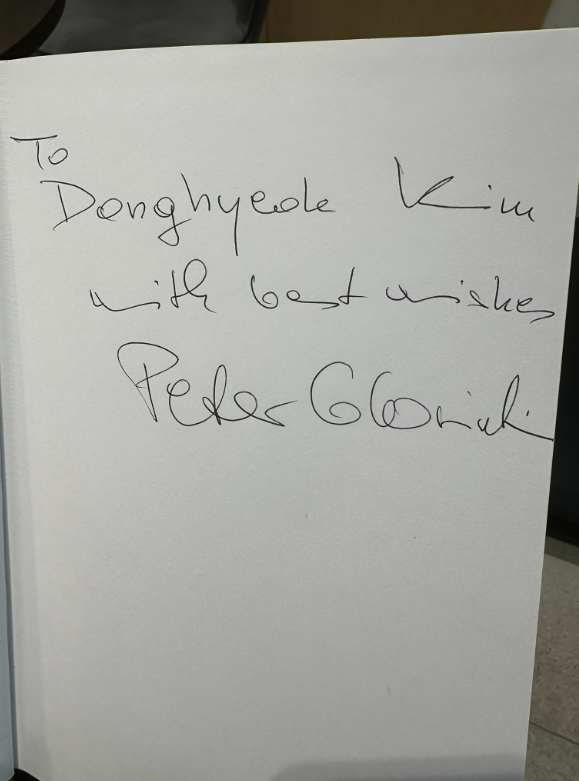 To
Donghyeok Kim
with best wishes
Peter